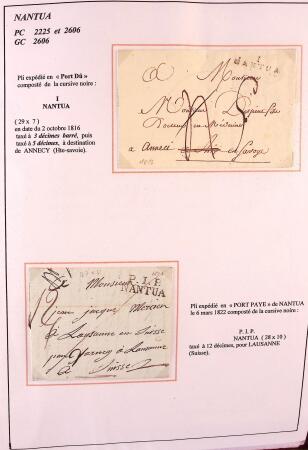 NANTUA
PC 2225 et 2606
GC 2606
Pli expédié en « Port Dû »
composté de la cursive noire :
I
NANTUA
( 29 x 7 )
en date du 2 octobre 1816
taxé à 3 décimes barré, puis
taxé à 5 décimes, à destination
de ANNECY (Hte-savoie).
1
NANTUA
A Monsieur
Monsieur
Docteur en Médecine
a Anneci en Savoye
Pli expédié en « PORT PAYE » de NANTUA
le 6 mars 1822 composté de la cursive noire :
P. I. P.
NANTUA ( 28 x 10 )
taxé à 12 décimes, pour LAUSANNE
(Suisse).
P. I. P.
NANTUA
Monsieur
jean jacques Mercier
à Lausanne en Suisse
à Lausanne
Suisse